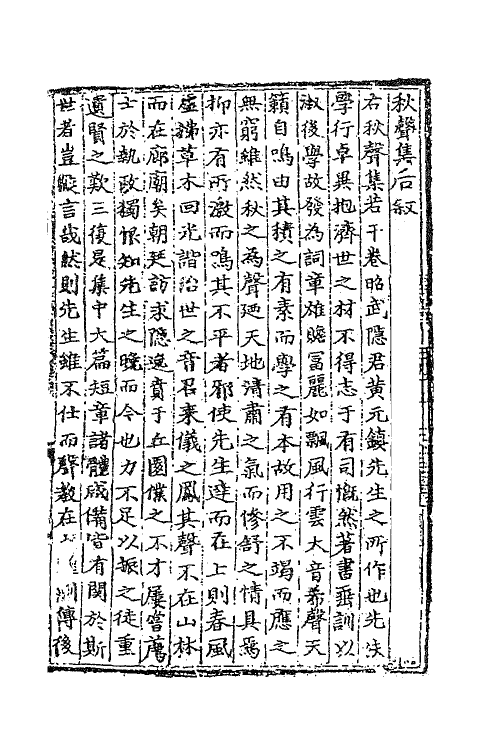 秋聲集后叙
右秋聲集若干卷昭武隱君黄元鎮先生之所作也先生
學行卓異抱濟世之材不得志于有司慨然著書垂訓以
淑後學故發為詞章雄贍冨麗如飄風行雲大音希聲天
籟自鳴由其積之有素而學之有本故用之不竭而應之
無窮雖然秋之為聲廼天地清肅之氣而修舒之情具焉
抑亦有所激而鳴其不平者邪使先生達而在上則春風
虛拂草木回光諧治世之音召来儀之鳳其聲不在山林
而在廊廟矣朝廷訪求隐逸賁于丘園僕之不才屢嘗薦
士於執政獨恨知先生之晚而今也力不足以振之徒重
遺賢之歎三復是集中大篇短章諸體咸備皆有関於斯
世者豈縱言哉然則先生雖不仕而聲教在 傳後